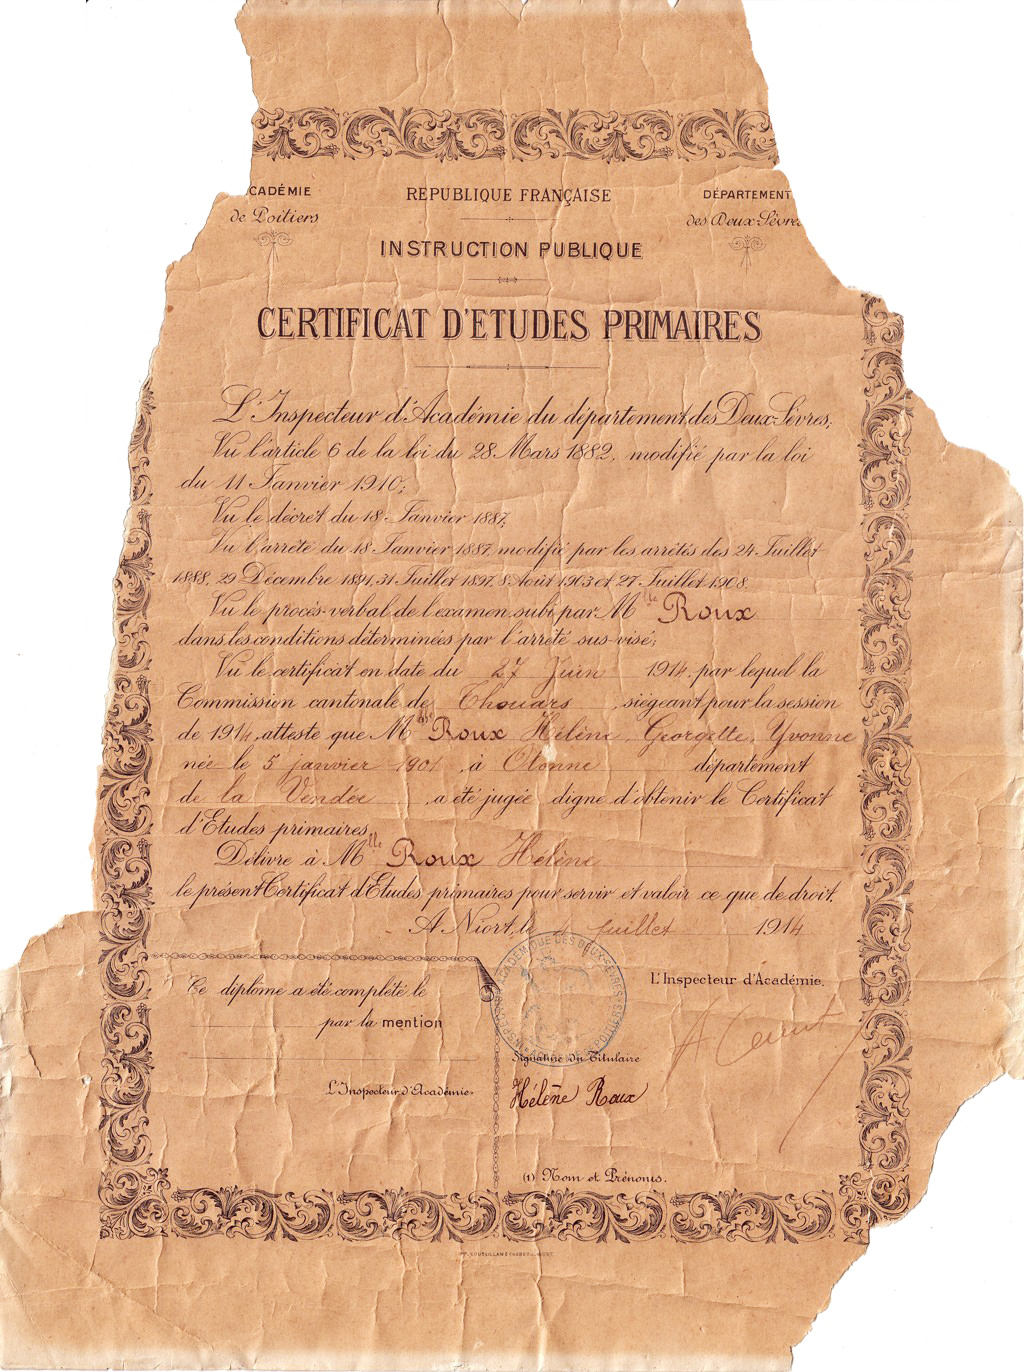 CADÉMIE
de Poitiers
REPUBLIQUE FRANÇAISE
DÉPARTEMENT
des Deux-Sèvre
INSTRUCTION PUBLIQUE
CERTIFICAT D'ETUDES PRIMAIRES
L'Inspecteur d'Académie du département des Deux-Sèvres,
Vu l'article 6 de la loi du 28 Mars 1882, modifié par la loi
du 11 Janvier 1910;
Vu le décret du 18 Janvier 1887,
Vu l'arrêté du 18 Janvier 1887, modifié par les arrêtés des 24 Juillet
1888, 29 Décembre 1891, 31 Juillet 1897, 8 Août 1903 et 27 Juillet 1908.
Vu le procès-verbal de l'examen subi par Mlle Roux
dans les conditions déterminées par l'arrêté sus-visé;
Vu le certificat en date du 27 Juin 1914, par lequel la
Commission cantonale de Thouars, siégeant pour la session
de 1914, atteste que Mlle Roux Hélène, Georgette, Yvonne
née le 5 janvier 1901, à Olonne département
de la Vendée, a été jugée digne d'obtenir le Certificat
d'Etudes primaires,
Délivre à Mlle Roux Hélène
le présent Certificat d'Etudes primaires pour servir et valoir ce que de droit.
A Niort, le 4 Juillet 1914
L'Inspecteur d'Académie,
Ce diplôme a été complété le
par la mention
L'Inspecteur d'Académie,
Signature du Titulaire
Hélène Roux
(1) Nom et Prénoms.